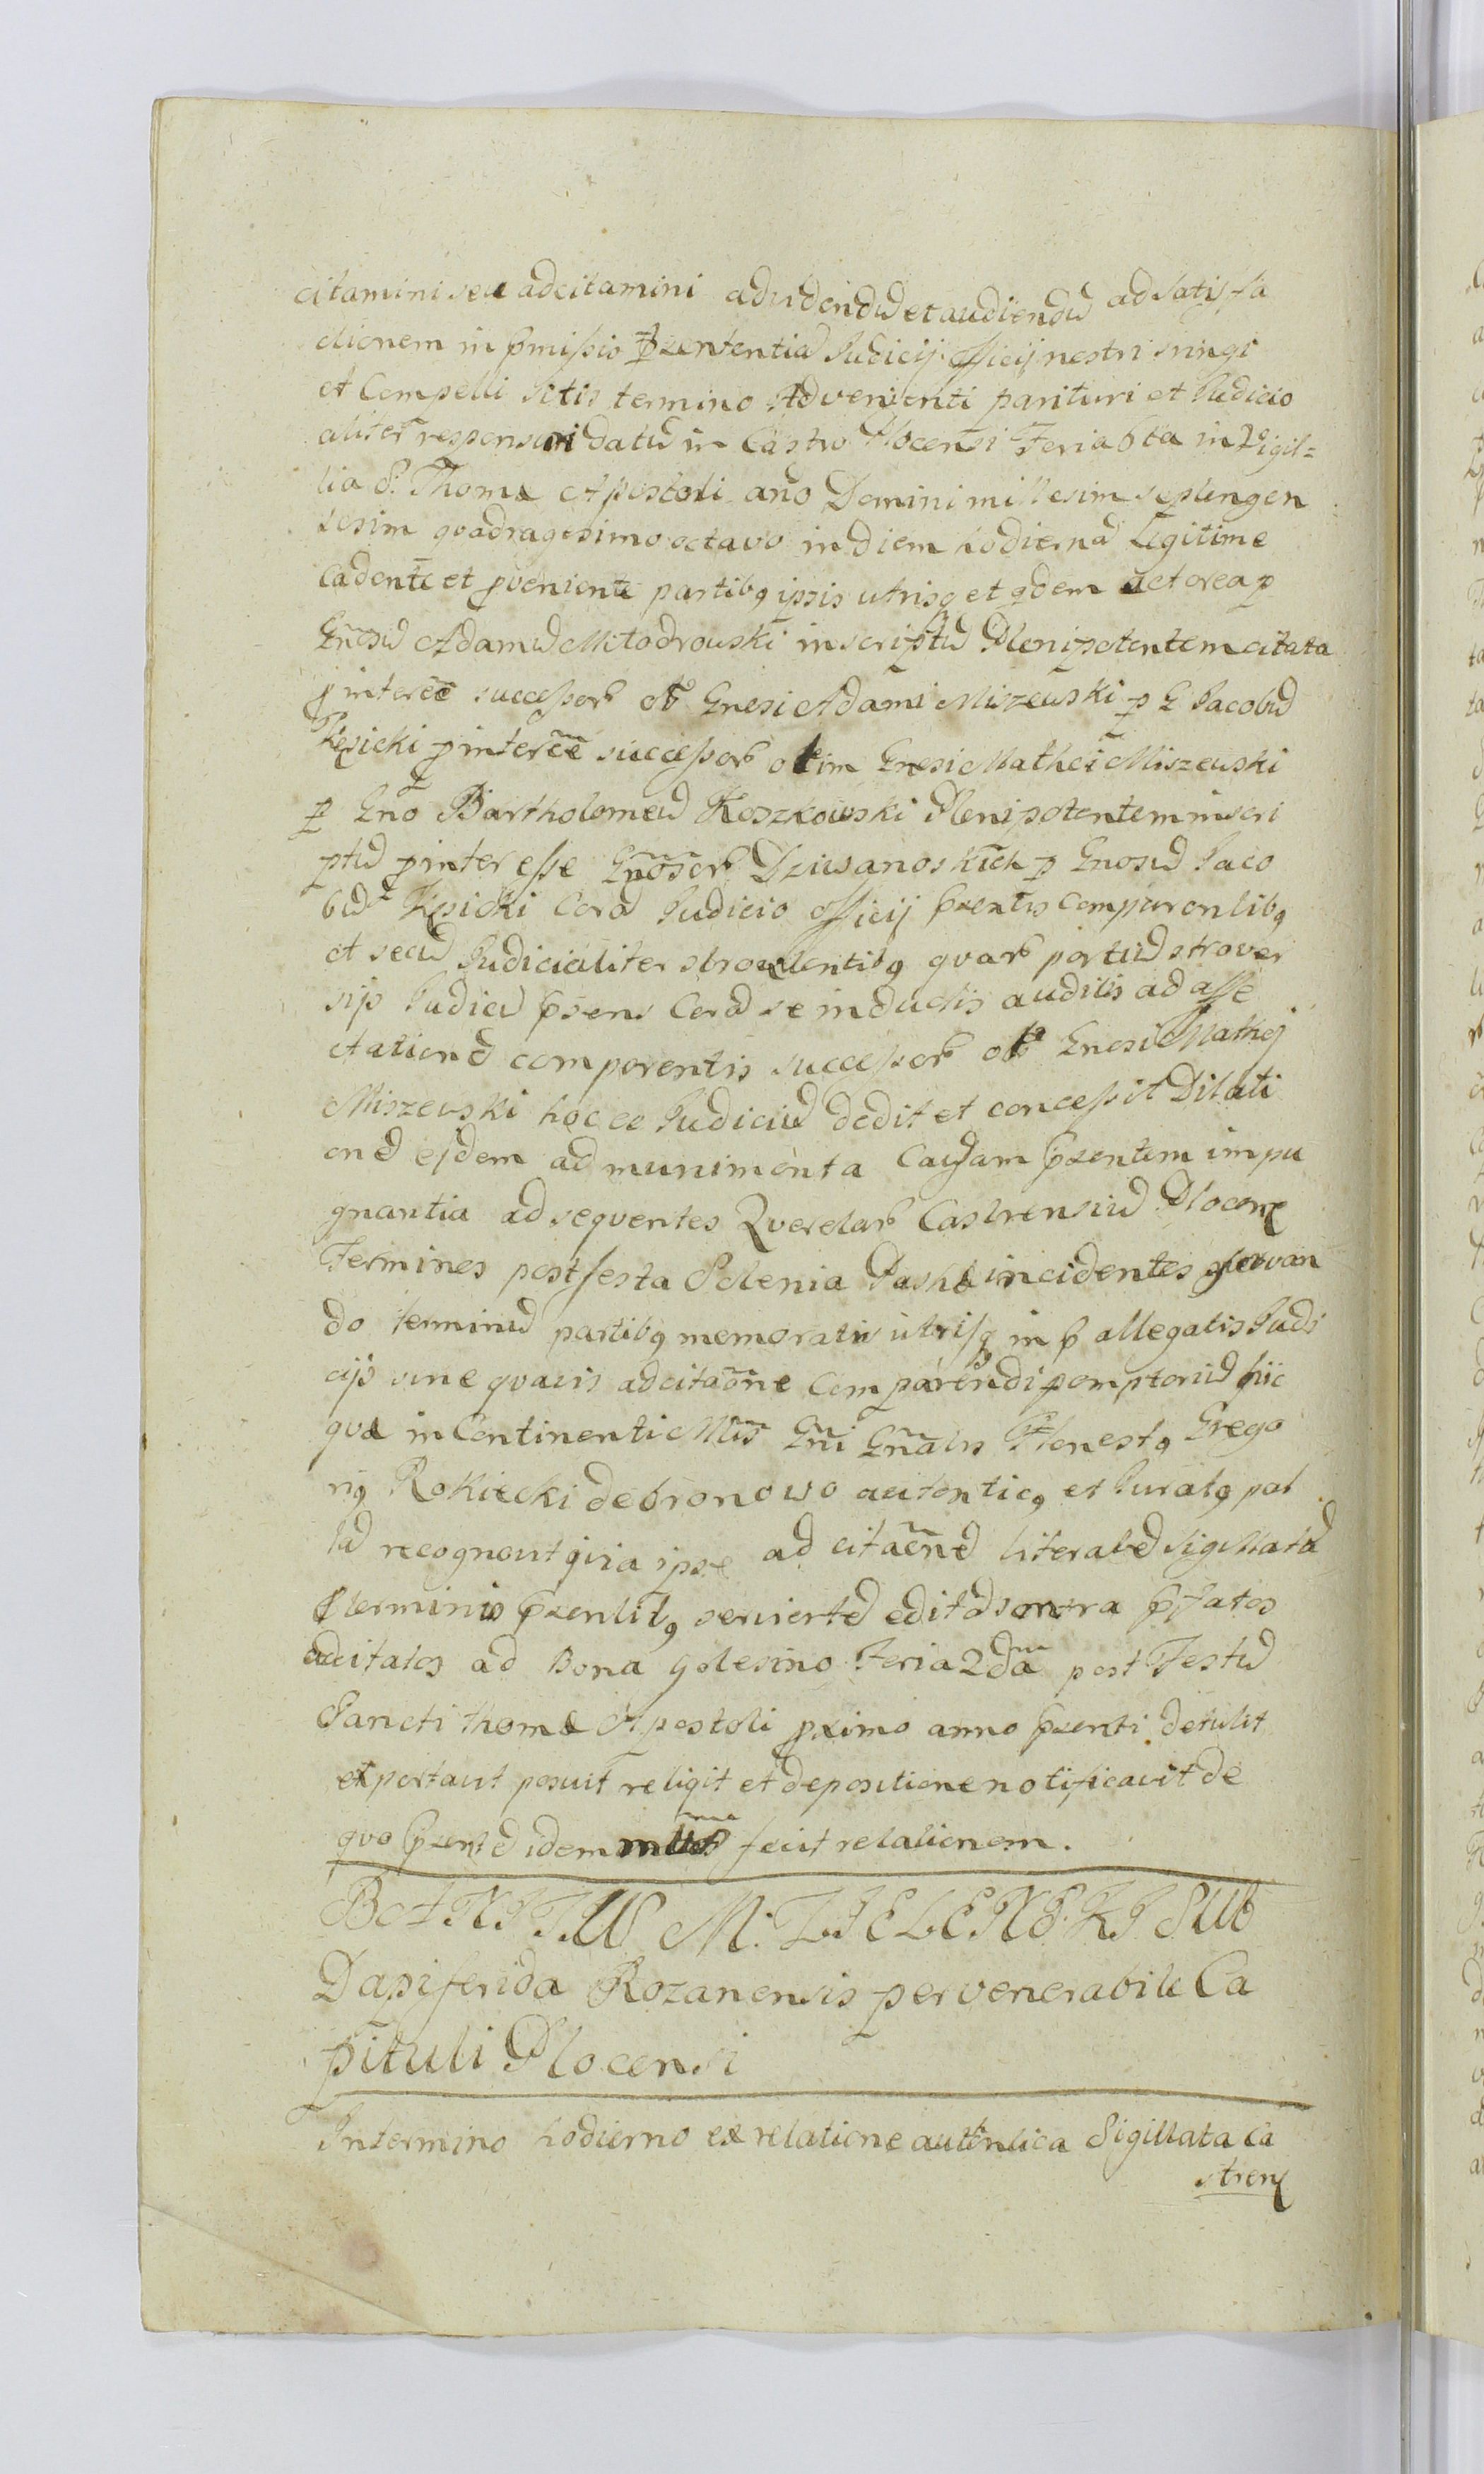 citamini seu adcitamini ad videndũ et audiendũ ad satisfa
ctionem in p̃missis p̱ zententiã Judicij officij nostri stringi
et Compelli sitis termino Adveniĕnti parituri et Judicio
aliter responsuri datũ in Castro Plocensi Feria 6ta in Vigil=
lia S. Thomæ Apostoli año Domini millesim septingen
tesim quadragesimo octavo in diem hodiernã Legitime
Cadente et p̱veniente partibꝫ ipsis utrisqꝫ et q̃dem actorea p̱
Gñosũ Adamũ Młodrowski inscriptũ Plenipotentem citata
p̱ interẽe successorꝝ olĩ Gnesi Adami Miszewski p̱ G Jacobũ
Kęsicki p̱ interẽe successorꝝ olim Gnesi Mathei Miszewski
p̱ Gno Bartholomeũ Koszkowski Plenipotentem inscri
ptũ p̱ interesse Gñosorꝝ Dziwanoskich p̱ Gnosũ Jaco
bũ Kęsicki Corã Judicio officij p̃zentis Comparentibꝫ
et secũ Judicialiter strovertentibꝫ quarꝝ partiũ strover
sijs Judiciũ p̃sens Corã se inductis auditis ad affe
ctationẽ comparentis successorꝝ olĩ Gnesi Mathej
Miszewski hocce Judiciũ dedit et concessit Dilati
onẽ ejdem ad munimenta Causam p̃zentem impu
gnantia ad sequentes Querelarꝝ Castrensiũ Plocens
Terminos post festa Solenia Pashæ incidentes servan
do terminũ partibꝫ memoratis utrisqꝫ in p̃ allegatis Judi
cijs sine quavis adcitaõne Comparendi pemptoriũ hic
quæ in Continenti Mĩs Gñi Gñalis Honestꝫ Grego
riꝫ Rokicki de bronowo autenticꝫ et Juratꝫ pal
lã recognovit quia ipse ad citaõnẽ literalẽ Sigillatã
terminis p̃zentibꝫ servientẽ editã sontra p̃fatos
adcitatos ad Bona golesino Feria 2dã post Festũ
Sancti thomæ Apostoli p̱ximo anno p̃zenti detulit
et portavit posuit religit et depositione notificavit de
quo p̃zentẽ idem fecit relationem.
BANITUS M. ZIELENSKI SUB
Dapiferida Rozanensis per venerabile Ca
pituli Plocensi
In termino hodierno ex relatione autentica Sigillata Ca
strens